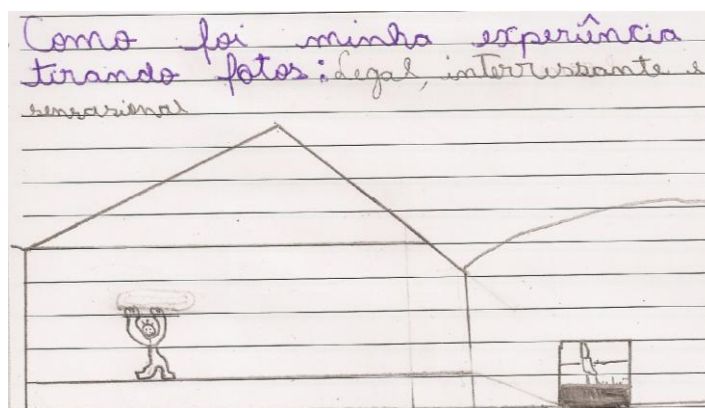 Como foi minha experiência
tirando fotos: Legal, interressante e
sensasional